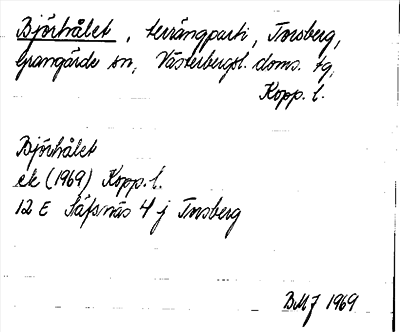 Björhålet, terrängparti, Torsberg,
Grangärde sn, Västerbergsl. doms. tg,
Kopp. l.
Björhålet
ek (1969) Kopp. l.
12 E Säfsnäs 4 j Torsberg
BMJ 1969